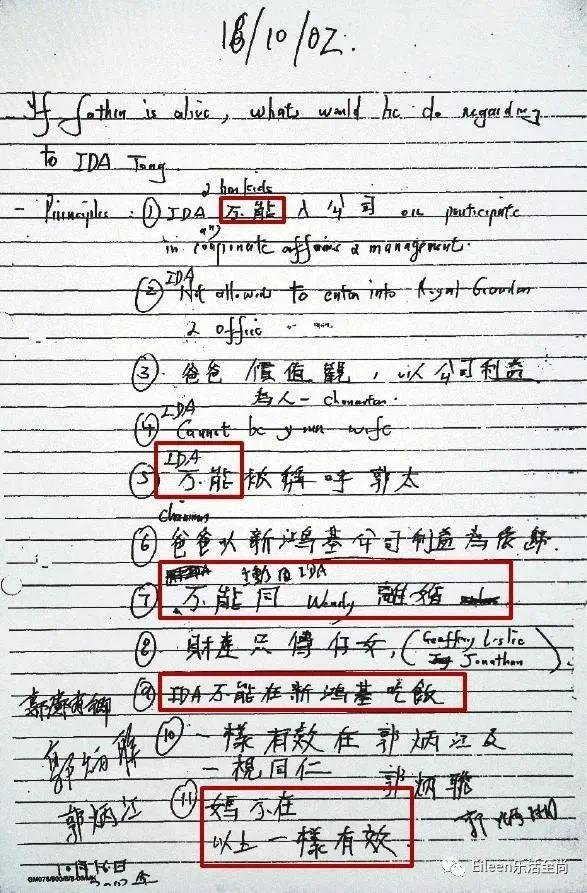 16/10/02.
If father is alive, what would he do regarding
to IDA Tong.
- Principles : ① IDA & her kids 不能 入 公司 or participate
in any corporate affairs & management.
② IDA Not allowed to enter into Royal Garden
& office
③ 爸爸 價值觀，以公司利益
為人 - character.
④ IDA Cannot be your wife
⑤ IDA 不能被稱呼郭太
⑥ 爸爸以新鴻基公司利益為依歸.
⑦ 主動因 IDA
不能同 Wendy 離婚
⑧ 財產只傳仔女, (Geoffrey Leslie
Jonathan).
⑨ IDA不能在新鴻基吃飯
⑩ 一樣有效在 郭炳江及
一視同仁 郭炳聯
⑪ 媽不在
以上一樣有效.
郭炳聯
郭炳江
10月16日
2002年
Eileen乐活至尚